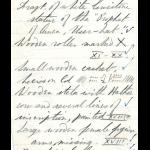 Fragt of a white limestone
statue of the "Prophet
of Amen, User-hat"
Wooden roller marked X
XI-XX
Small wooden casket,
Wooden stela with Hathor
cow and several lines of
inscription, painted XVIII
Large wooden female figure
arms, missing. XVIII